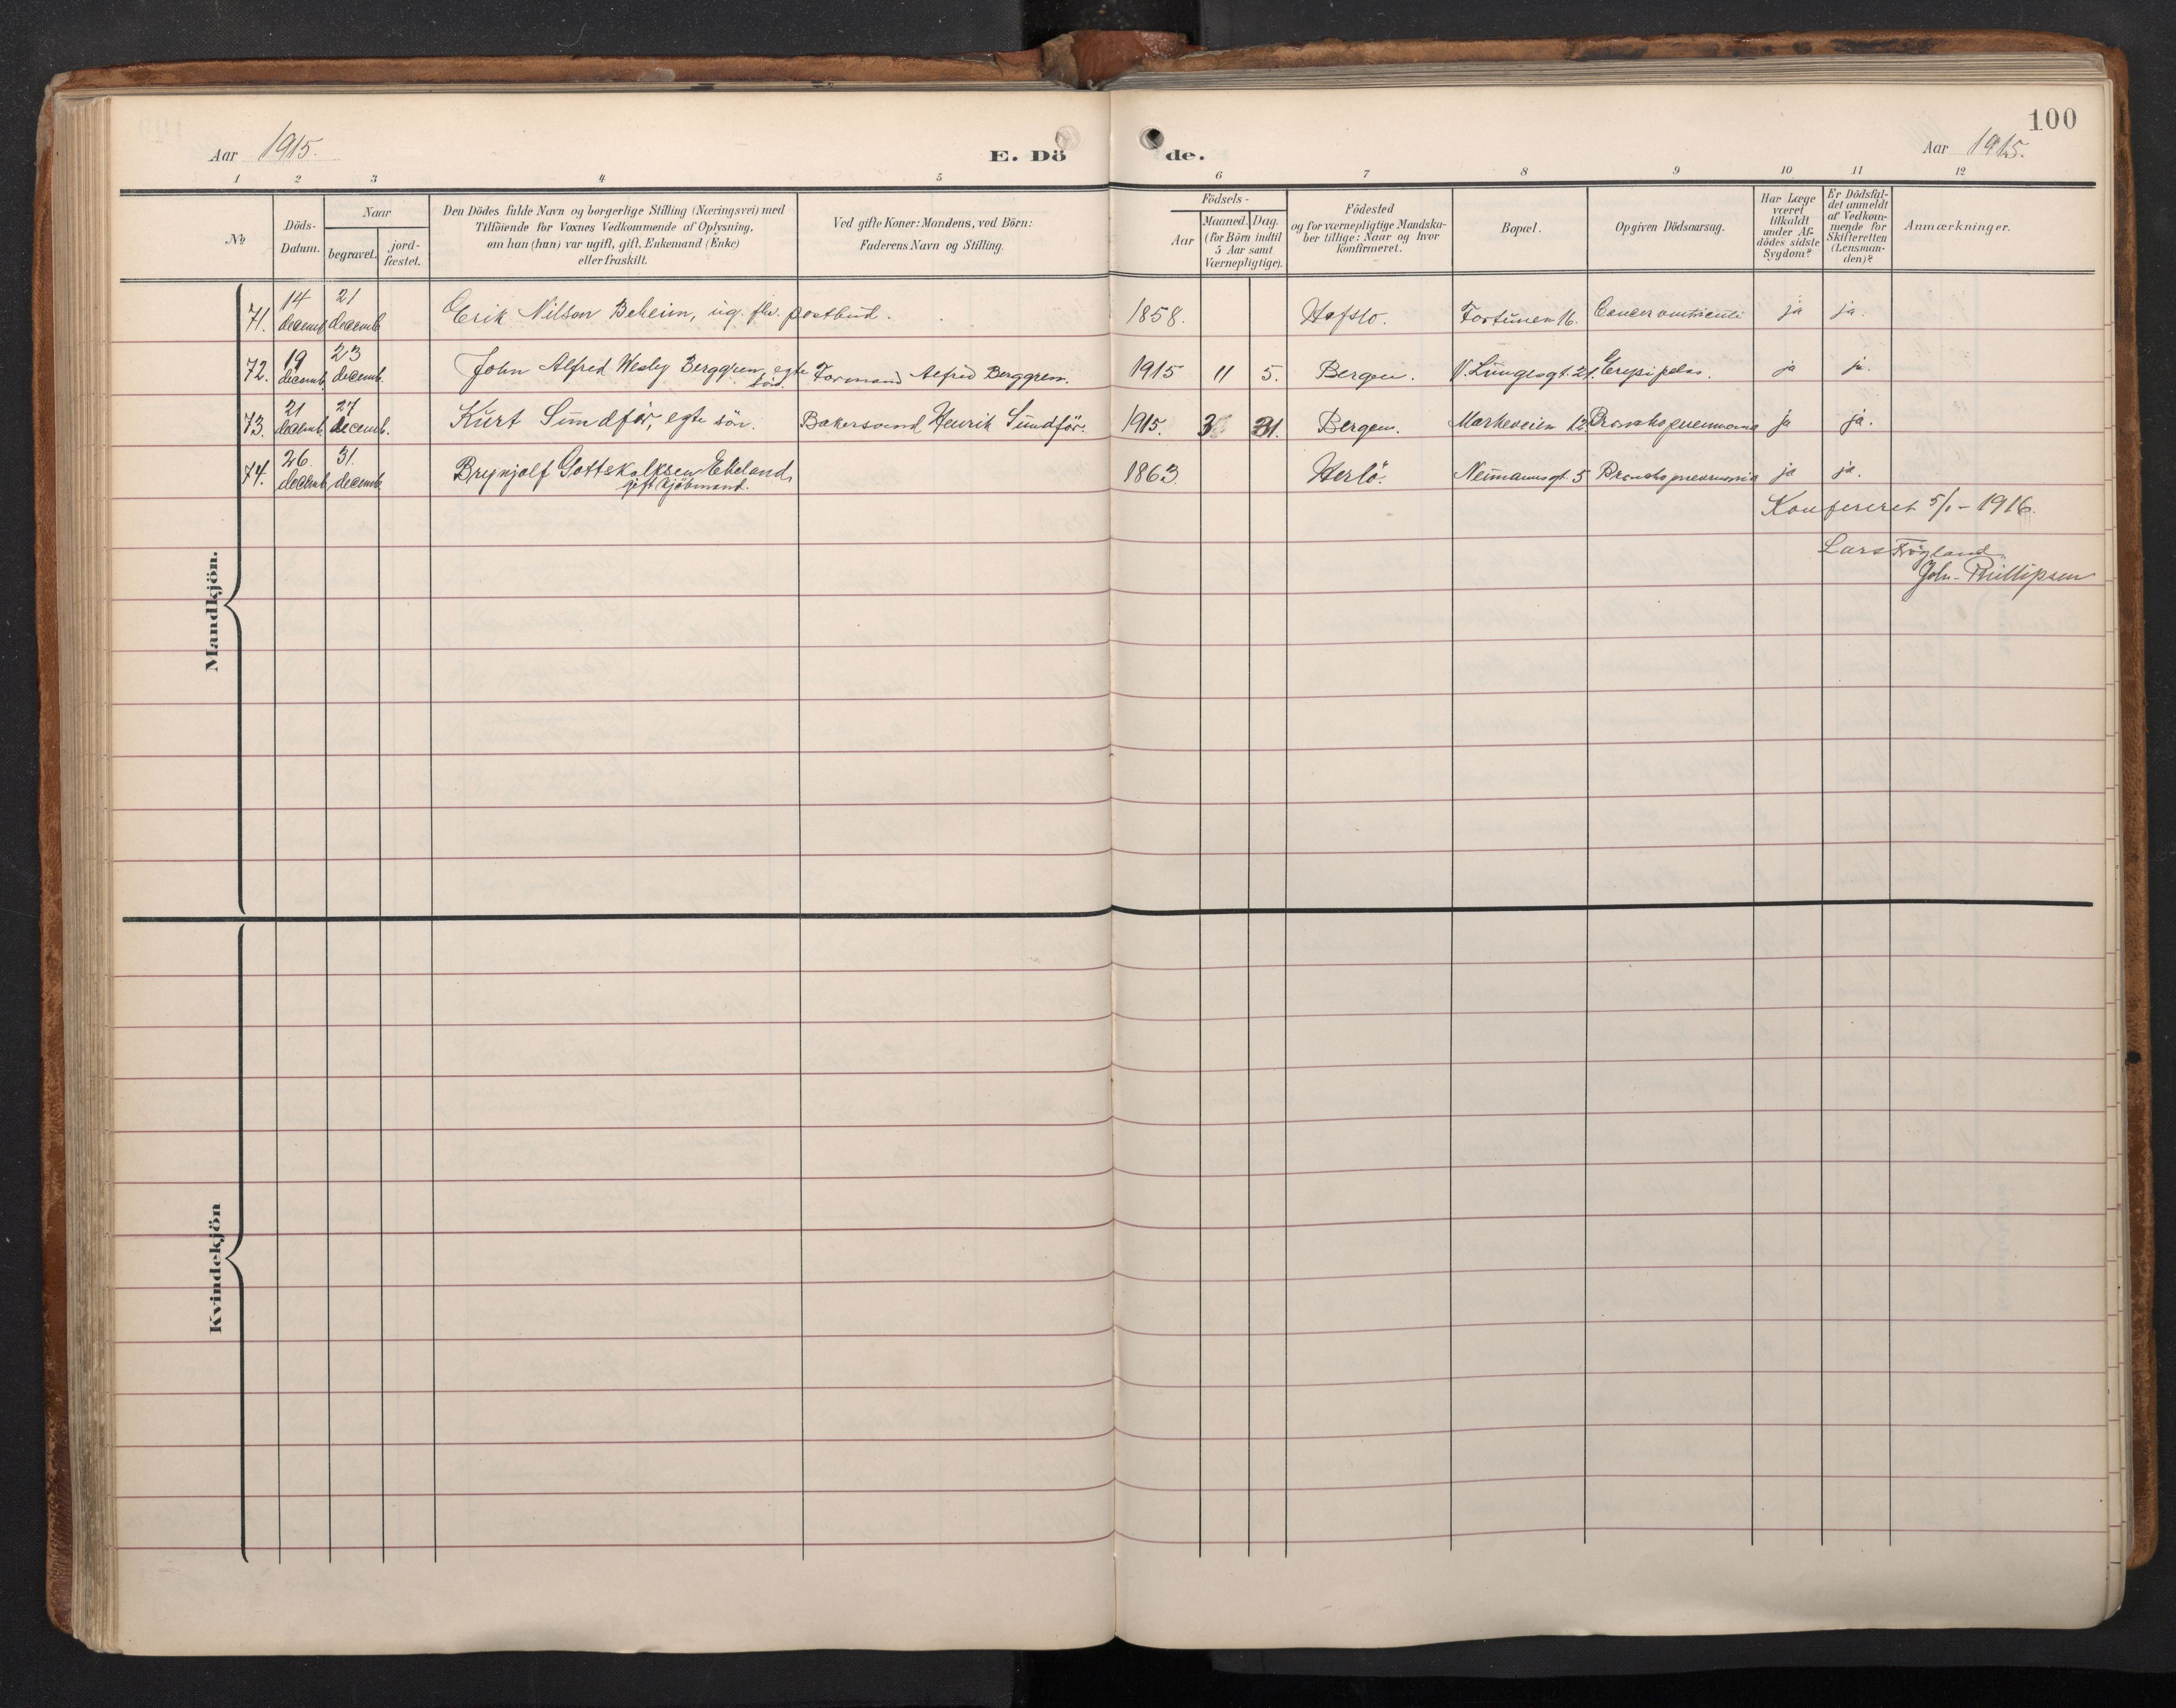 100
Aar 1915.
E. Dö
de.
Aar 1915.
1 2 3 4 5 6 7 8 9 10 11 12
No
Döds-
Datum.
Naar
begravet.
jord-
fæstet.
Den Dödes fulde Navn og borgerlige Stilling (Næringsvei) med
Tilföiende for Voxnes Vedkommende af Oplysning,
om han (hun) var ugift, gift, Enkemand (Enke)
eller fraskilt.
Ved gifte Koner: Mandens, ved Börn:
Faderens Navn og Stilling.
Födsels-
Aar
Maaned. Dag.
(for Börn indtil
5 Aar samt
Værnepligtige).
Födested
og for værnepligtige Mandska-
ber tillige: Naar og hvor
konfirmeret.
Bopæl.
Opgiven Dödsaarsag.
Har Læge
været
tilkaldt
under Af-
dödes sidste
Sygdom?
Er Dödsfal-
det anmeldt
af Vedkom-
mende for
Skifteretten
(Lensman-
den)?
Anmærkninger.
Mandkjön.
71. 14 decemb. 21 decemb. Erik Nilsen Beheim, ug. fhv. postbud. 1858. Hafslo. Fortunen 16. Cancer ventriculi ja ja.
72. 19 decemb. 23 decemb. John Alfred Wesley Berggren, egte sön. Formand Alfred Berggren. 1915 11 5. Bergen. V. Lungegt. 21. Erysipelas. ja ja.
73. 21 decemb. 27 decemb. Kurt Sundför, egte sön. Bakersvend Henrik Sundför. 1915. 3 31. Bergen. Markeveien 12. Bronchopneumonia ja ja.
74. 26. decemb. 31. decemb. Brynjolf Gottskalksen Ekeland,
gift kjöbmand. 1863. Herlö. Neumannsgt. 5 Bronchopneumonia ja ja.
Konfereret 5/1 - 1916.
Lars
John Phillipsen
Kvindekjön